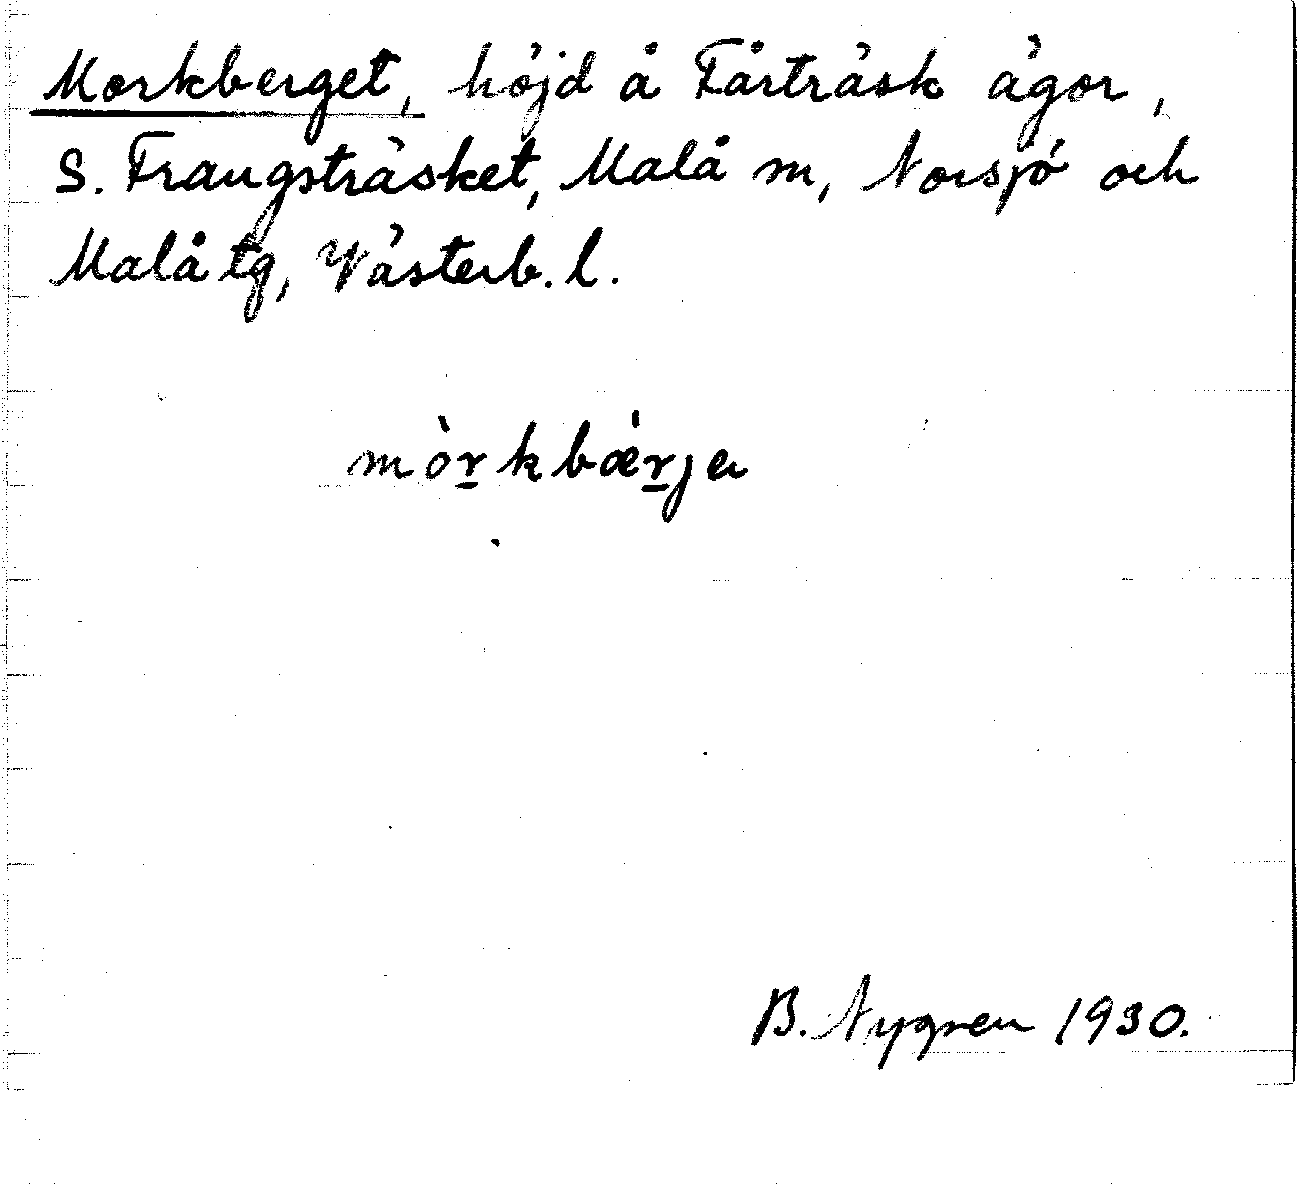 Morkberget, höjd å Fårträsk ägor,
S. Fraugsträsket, Malå sn, Norsjö och
Malå tg, Västerb. l.
mòr̲kbæ̀r̲ja
B. Nygren 1930.